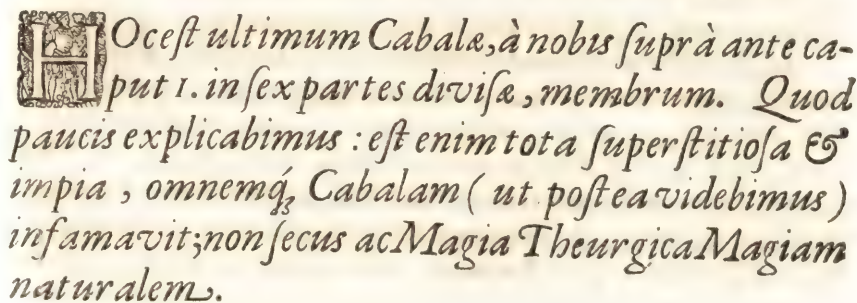 HOc eſt ultimum Cabalæ, à nobis ſuprà ante ca-
put 1. in ſex partes diviſæ, membrum. Quod
paucis explicabimus : eſt enim tota ſuperſtitioſa &
impia, omnemq́ꝫ Cabalam ( ut poſtea videbimus )
infamavit; non ſecus ac Magia Theurgica Magiam
naturalem.